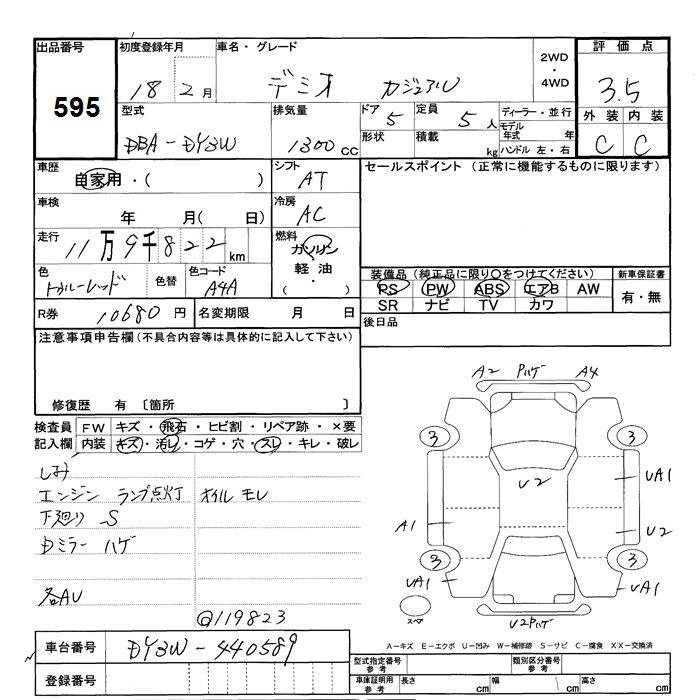 出品番号 初度登録年月 車名・グレード 2WD・4WD 評価点
595 18 2月 デミオ カジュアル 3.5
型式 排気量 ドア 5 定員 5人 ディーラー・並行 外装 内装
DBA-DY3W 1300CC 形状 積載 kg モデル年式 年 ハンドル 左・右 C C
車歴 自家用・( ) シフト AT セールスポイント (正常に機能するものに限ります)
車検 年 月( 日) 冷房 AC
走行 11万9千822km 燃料 ガソリン 軽油 ( ・ )
色 トゥルーレッド 色替 色コード A4A
装備品(純正品に限り○をつけてください) 新車保証書
PS PW ABS エアB AW 有・無
SR ナビ TV カワ
R券 10680円 名変期限 月 日 後日品
注意事項申告欄(不具合内容等は具体的に記入して下さい)
修復歴 有 〔箇所 〕
検査員 FW キズ・飛石・ヒビ割・リペア跡・×要
記入欄 内装 キズ・汚レ・コゲ・穴・スレ・キレ・破レ
しみ
エンジン ランプ点灯 オイルモレ
下廻り S
Dミラー ハゲ
各AU
@119823
A2 Pハゲ A4
3 3
U2 UA1
A1 U2
3 3
UA1 UA1
スペア U2Pハゲ
A-キズ E-エクボ U-凹み W-補修跡 S-サビ C-腐食 XX-交換済
車台番号 DY3W-440589
登録番号
型式指定番号 参考 類別区分番号 参考
車庫証明用 参考 長さ cm 幅 cm 高さ cm